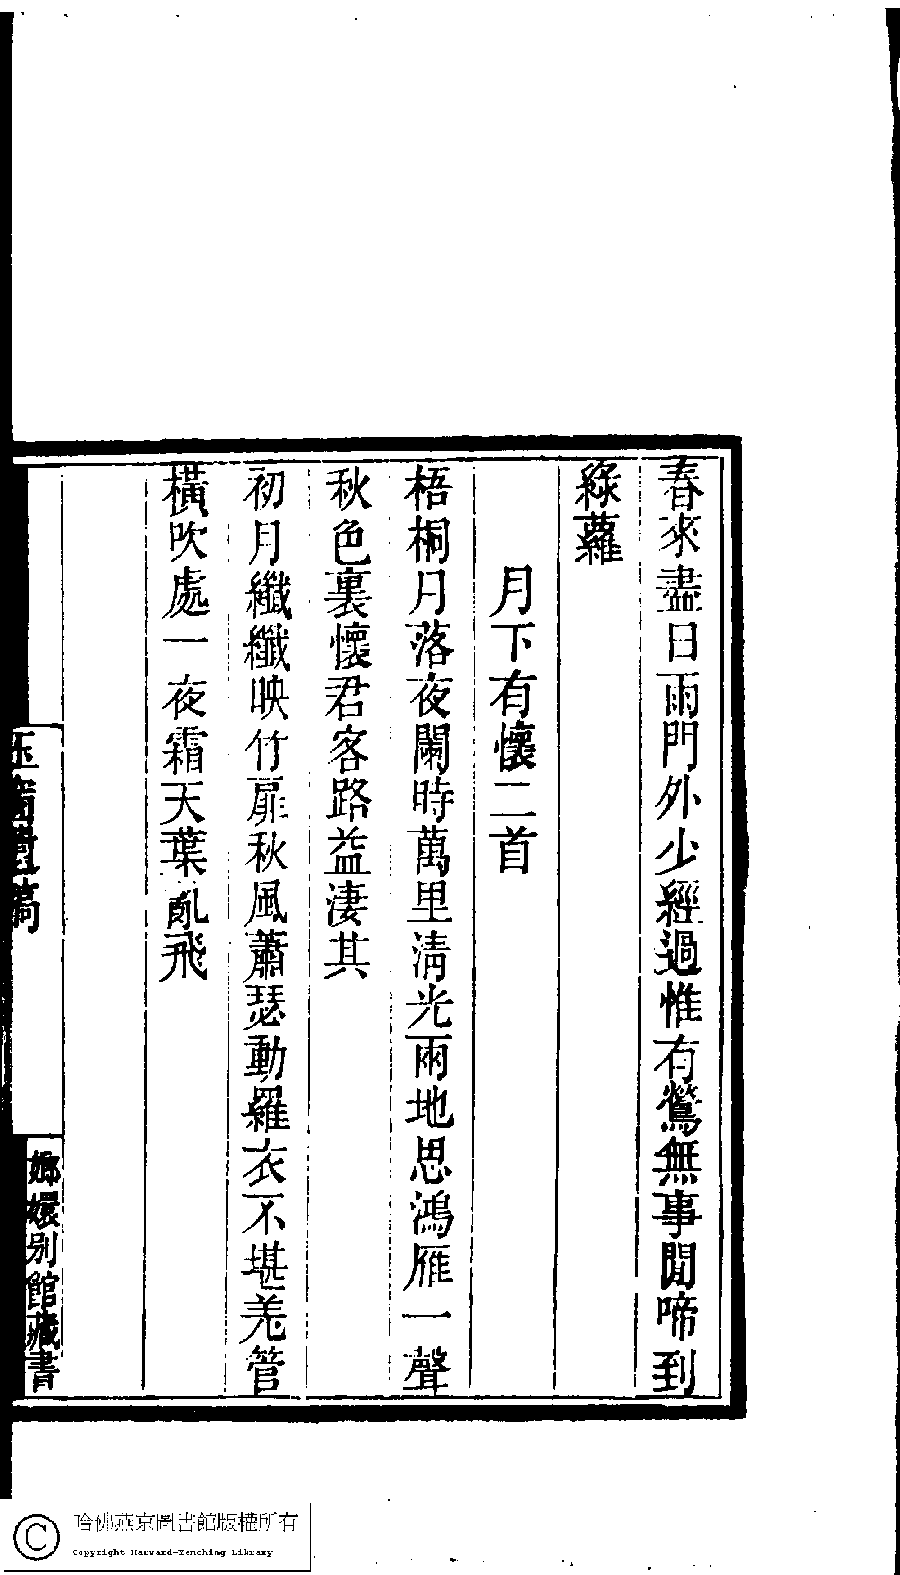 春來盡日雨門外少經過惟有鶯無事閒啼到
綠蘿
月下有懷二首
梧桐月落夜闌時萬里清光兩地思鴻雁一聲
秋色裏懷君客路益淒其
初月纖纖映竹扉秋風蕭瑟動羅衣不堪羌管
橫吹處一夜霜天葉亂飛
玉窗遺稿
嫏嬛別館藏書
哈佛燕京圖書館版權所有
Copyright Harvard-Yenching Library